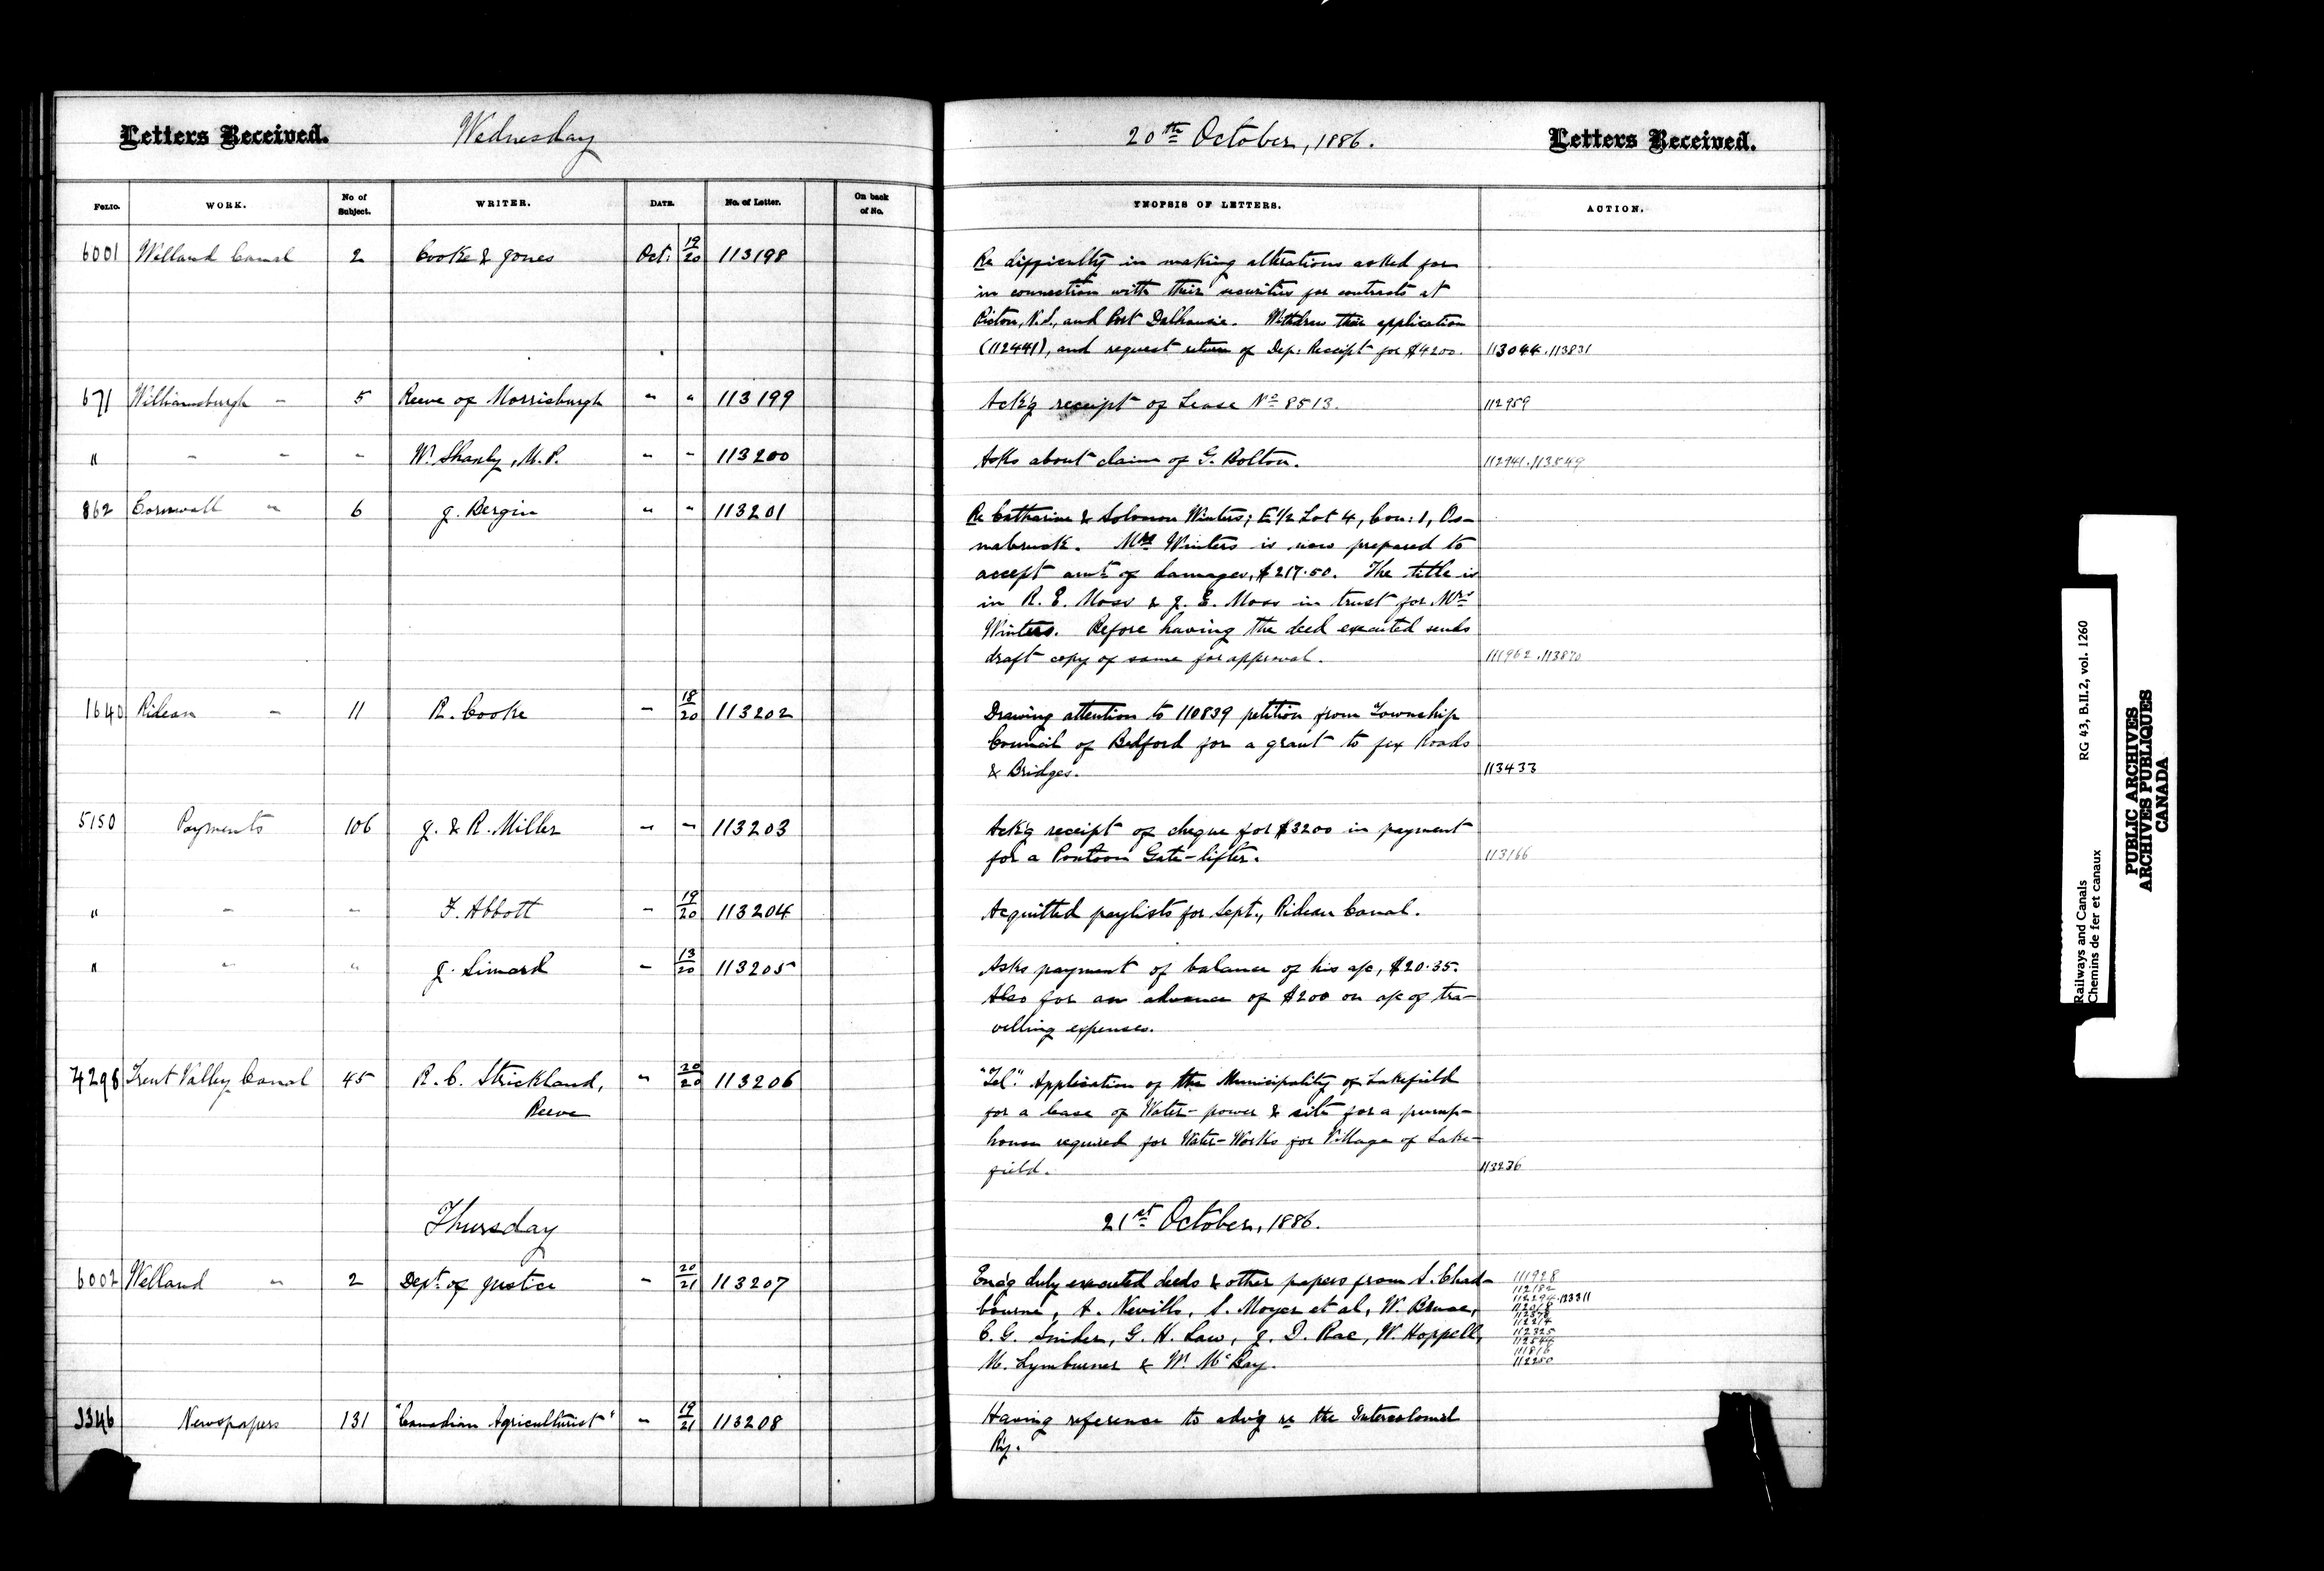 Letters Received. Wednesday 20th October, 1886. Letters Received.
FOLIO. WORK. No of Subject. WRITER. DATE. No. of Letter. On back of No. YNOPSIS OF LETTERS. ACTION.
6001 Welland Canal 2 Cooke & Jones Oct: 19/20 113198 Re difficulty in making alterations asked for
in connection with their securities for contracts at
Pictou, N.S., and Port Dalhousie. Withdraw their application
(112441), and request return of Dep: Receipt for $4200. 113044.113831
671 Williamsburgh " 5 Reeve of Morrisburgh " " 113199 Ack'g receipt of Lease No 8513. 112959
" " " " W. Shanly, M.P. " " 113200 Asks about claim of G. Bolton. 112941.113549
862 Cornwall " 6 J. Bergin " " 113201 Re Catharine & Solomon Winters; E 1/2 Lot 4, Con: 1, Os-
nabruck. Mrs Winters is now prepared to
accept amt of damages, $217.50. The title is
in R. E. Moss & J. E. Moss in trust for Mrs
Winters. Before having the deed executed sends
draft copy of same for approval. 111962.113870
1640 Rideau " 11 R. Cooke " 18/20 113202 Drawing attention to 110839 petition from Township
Council of Bedford for a grant to fix Roads
& Bridges. 113433
5150 Payments 106 J. & R. Miller " " 113203 Ack'g receipt of cheque for $3200 in payment
for a Pontoon Gate-lifter. 113166
" " " F. Abbott " 19/20 113204 Acquitted paylists for Sept., Rideau Canal.
" " " J. Simard " 13/20 113205 Asks payment of balance of his a/c, $20.35.
Also for an advance of $200 on a/c of tra-
velling expenses.
4298 Trent Valley Canal 45 R. C. Strickland, " 20/20 113206 "Tel." Application of the Municipality of Lakefield
Reeve for a lease of Water-power & site for a pump-
house required for Water-Works for Village of Lake-
field. 113236
Thursday 21st October, 1886.
6002 Welland " 2 Dept. of Justice " 20/21 113207 Enc'g duly executed deeds & other papers from S. Chad- 111928
112182
bourne, A. Nevills, S. Moyer et al, W. Bruce, 112294.123311
C. G. Snider, G. H. Law, J. D. Rae, W. Hoppell, 112325
M. Lymburner & W. McCay. 111816
112250
3346 Newspapers 131 "Canadian Agriculturist" " 19/21 113208 Having reference to adv'g re the Intercolonial
Ry.
RG 43, B.II.2, vol. 1260
Railways and Canals
Chemins de fer et canaux
PUBLIC ARCHIVES
ARCHIVES PUBLIQUES
CANADA